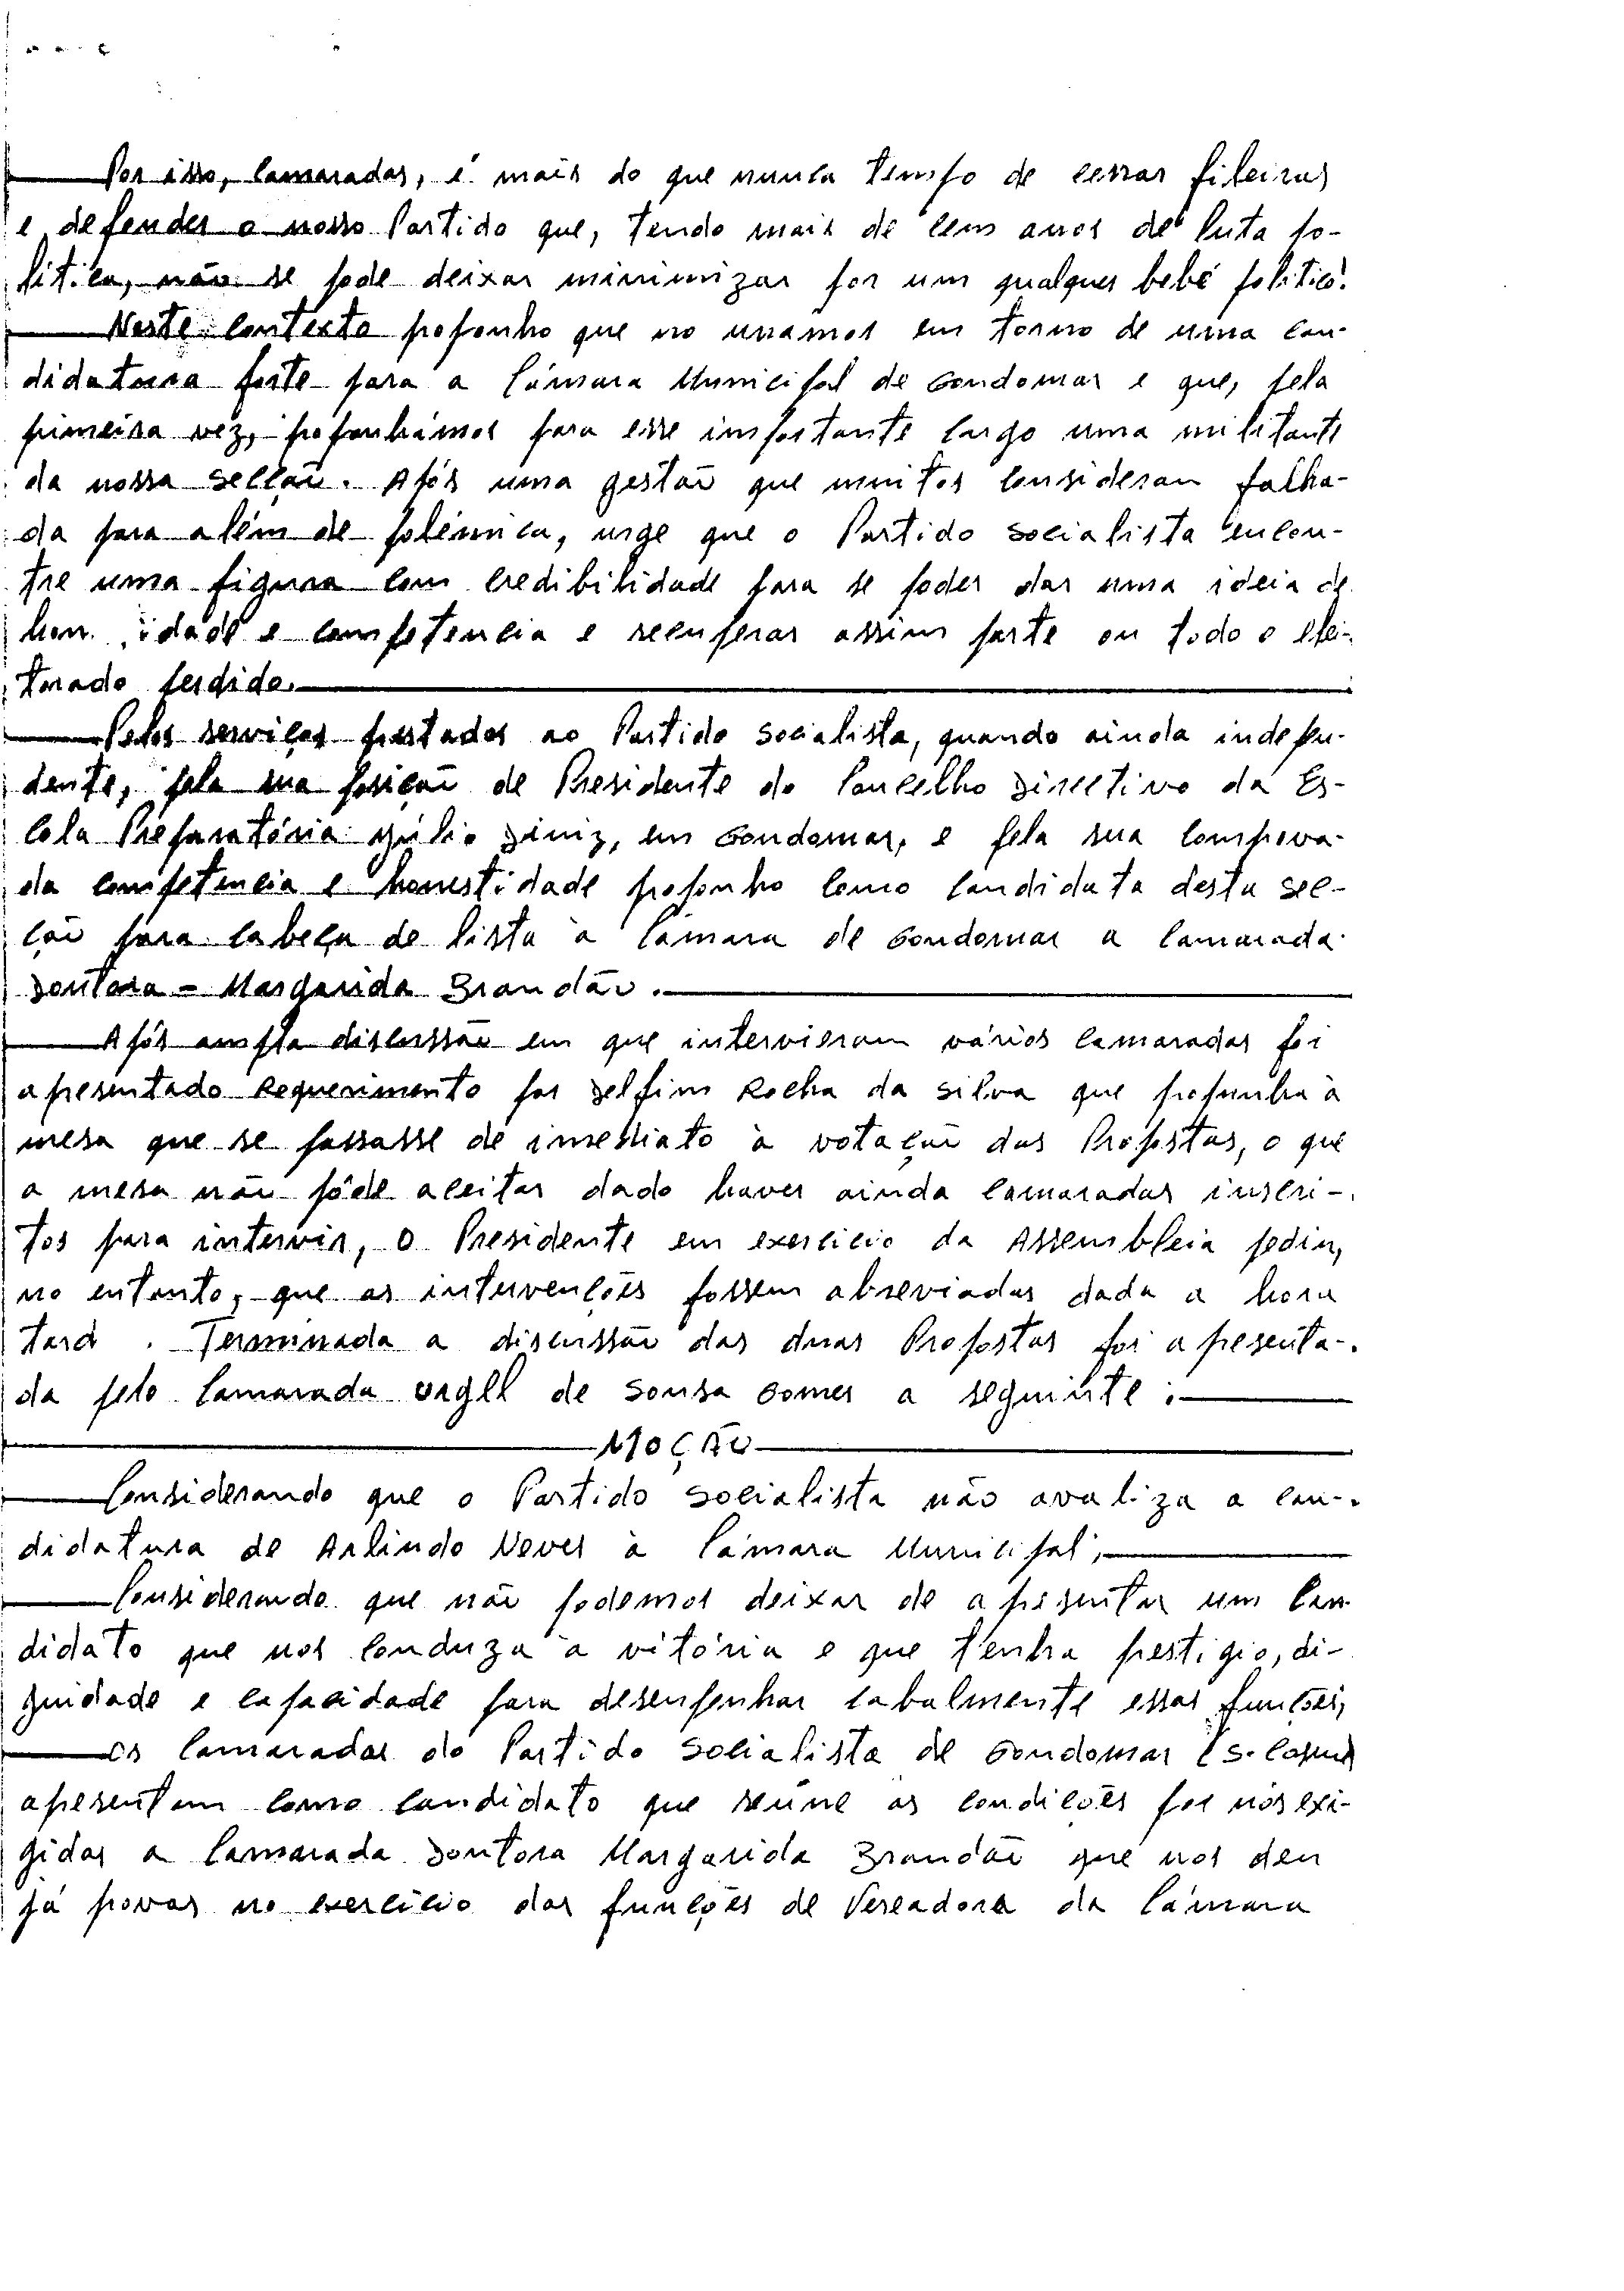 Por isso, camaradas, é mais do que nunca tempo de cerrar fileiras
e defender o nosso Partido que, tendo mais de cem anos de luta po-
lítica, não se pode deixar minimizar por um qualquer bebé político.
Neste contexto proponho que no unamos em torno de uma can-
didatura forte para a Câmara Municipal de Gondomar e que, pela
primeira vez, proponhámos para esse importante cargo uma militante
da nossa secção. Após uma gestão que muitos consideram falha-
da para além de polémica, urge que o Partido Socialista encon-
tre uma figura com credibilidade para se poder dar uma ideia de
hon idade e competencia e recuperar assim parte ou todo o elei-
torado perdido.
Pelos serviços prestados ao Partido Socialista, quando ainda indepen-
dente, pela sua posição de Presidente do Concelho Directivo da Es-
cola Preparatória Júlio Diniz, em Gondomar, e pela sua comprova-
da competencia e honestidade proponho como candidata desta sec-
ção para cabeça de lista à Câmara de Gondomar a camarada
Doutora - Margarida Brandão.
Após ampla discussão em que intervieram vários camaradas foi
apresentado Requerimento por Delfim Rocha da Silva que propunha à
mesa que se passasse de imediato à votação das Propostas, o que
a mesa não pôde aceitar dado haver ainda camaradas inscri-
tos para intervir, O Presidente em exercicio da Assembleia pediu,
no entanto, que as intervenções fossem abreviadas dada a hora
tard . Terminada a discussão das duas Propostas foi apresenta-
da pelo camarada Urgel de Sousa Gomes a seguinte :
MOÇÃO
Considerando que o Partido Socialista não avaliza a can-
didatura de Arlindo Neves à Câmara Municipal;
Considerando que não podemos deixar de apresentar um can
didato que nos conduza à vitória e que tenha prestigio, di-
gnidade e capacidade para desenpenhar cabalmente essas funções,
os camaradas do Partido Socialista de Gondomar (S. Cosme)
apresentam como candidato que reúne as condições por nós exi-
gidas a camarada Doutora Margarida Brandão que nos deu
já provas no exercício das funções de Vereadora da Câmara